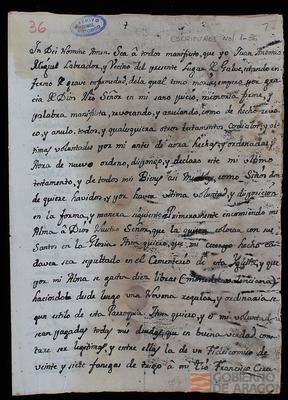 36
ESCRITURAS Nº 1-36
In Dei Nomine Amen. Sea à todos manifiesto, que yo Juan Antonio
Labrador, y Vezino del presente Lugar de Galve, estando en
fermo de grave enfermedad, de la qual temo morir, empero, por gra
cia de Dios Nro Señor en mi sano juicio, memoria firme, y
palabra manifiesta, revocando, y anulando, como de hecho revo
co, y anulo, todos, y qualesquiera otros testamentos, codicilos, y ul
timas voluntades por mi antes de aora hechos, y ordenados,
Aora de nuevo ordeno, dispongo, y declaro este mi ultimo
testamento, y de todos mis Bienes asi Muebles, como Sitios don
de quiere havidos, y por haver, ultima voluntad, y disposicion
en la forma, y manera siguiente. Primeramente encomiendo mi
Alma à Dios Nuestro Señor, que la quiera colocar con sus
Santos en la Gloria. Item quiero, que mi cuerpo hecho ca
daver sea sepultado en el Cementerio de esta Iglesia, y que
por mi Alma se gasten diez libras
haciendola desde luego una Novena regular, y ordinaria se
gun estilo de esta Parroquia. Item quiero, y es mi voluntad
sean pagadas todas mis deudas, que en buena verdad cons
tare ser legitimas, y entre ellas la de un Fideicomiso de
veinte y siete fanegas de trigo à mi Tio Francisco
GOBIERNO
DE ARAGON